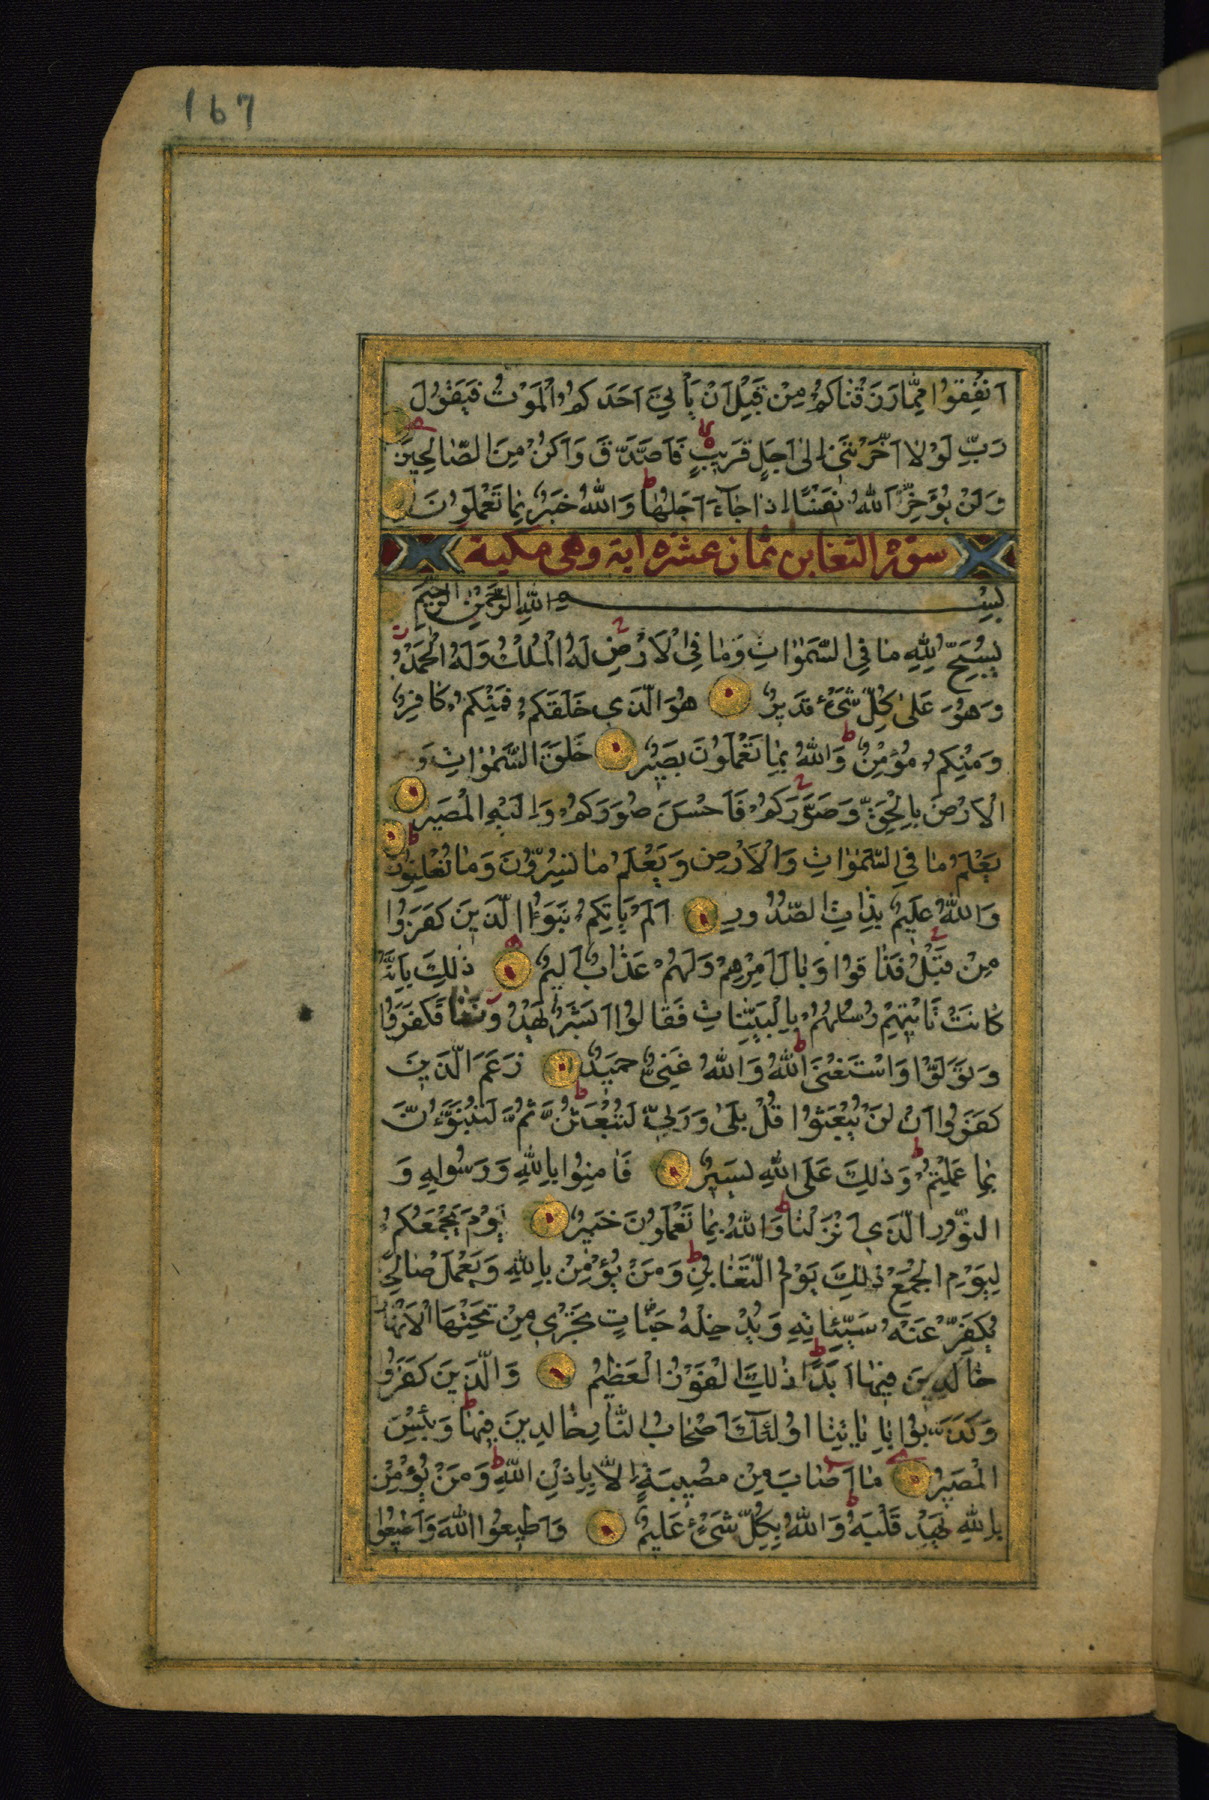 167
اَنْفِقُوا مِمَّا رَزَقْنَاكُمْ مِنْ قَبْلِ اَنْ يَاْتِيَ اَحَدَكُمُ الْمَوْتُ فَيَقُولَ
رَبِّ لَوْلَا اَخَّرْتَنِي اِلٰى اَجَلٍ قَرِيبٍ فَاَصَّدَّقَ وَاَكُنْ مِنَ الصَّالِحِينَ
وَلَنْ يُؤَخِّرَ اللهُ نَفْسًا اِذَا جَاءَ اَجَلُهَا وَاللهُ خَبِيرٌ بِمَا تَعْمَلُونَ
سورة التغابن ثمان عشره اية وهي مكية
بِسْمِ اللهِ الرَّحْمٰنِ الرَّحِيمِ
يُسَبِّحُ لِلّٰهِ مَا فِي السَّمٰوَاتِ وَمَا فِي الْاَرْضِ لَهُ الْمُلْكُ وَلَهُ الْحَمْدُ
وَهُوَ عَلٰى كُلِّ شَيْءٍ قَدِيرٌ هُوَ الَّذِي خَلَقَكُمْ فَمِنْكُمْ كَافِرٌ
وَمِنْكُمْ مُؤْمِنٌ وَاللهُ بِمَا تَعْمَلُونَ بَصِيرٌ خَلَقَ السَّمٰوَاتِ وَ
الْاَرْضَ بِالْحَقِّ وَصَوَّرَكُمْ فَاَحْسَنَ صُوَرَكُمْ وَاِلَيْهِ الْمَصِيرُ
يَعْلَمُ مَا فِي السَّمٰوَاتِ وَالْاَرْضِ وَيَعْلَمُ مَا تُسِرُّونَ وَمَا تُعْلِنُونَ
وَاللهُ عَلِيمٌ بِذَاتِ الصُّدُورِ اَلَمْ يَاْتِكُمْ نَبَؤُا الَّذِينَ كَفَرُوا
مِنْ قَبْلُ فَذَاقُوا وَبَالَ اَمْرِهِمْ وَلَهُمْ عَذَابٌ اَلِيمٌ ذٰلِكَ بِاَنَّهُ
كَانَتْ تَاْتِيهِمْ رُسُلُهُمْ بِالْبَيِّنَاتِ فَقَالُوا اَبَشَرٌ يَهْدُونَنَا فَكَفَرُوا
وَتَوَلَّوْا وَاسْتَغْنَى اللهُ وَاللهُ غَنِيٌّ حَمِيدٌ زَعَمَ الَّذِينَ
كَفَرُوا اَنْ لَنْ يُبْعَثُوا قُلْ بَلٰى وَرَبِّي لَتُبْعَثُنَّ ثُمَّ لَتُنَبَّؤُنَّ
بِمَا عَمِلْتُمْ وَذٰلِكَ عَلَى اللهِ يَسِيرٌ فَاٰمِنُوا بِاللهِ وَرَسُولِهِ وَ
النُّورِ الَّذِي اَنْزَلْنَا وَاللهُ بِمَا تَعْمَلُونَ خَبِيرٌ يَوْمَ يَجْمَعُكُمْ
لِيَوْمِ الْجَمْعِ ذٰلِكَ يَوْمُ التَّغَابُنِ وَمَنْ يُؤْمِنْ بِاللهِ وَيَعْمَلْ صَالِحًا
يُكَفِّرْ عَنْهُ سَيِّئَاتِهِ وَيُدْخِلْهُ جَنَّاتٍ تَجْرِي مِنْ تَحْتِهَا الْاَنْهَارُ
خَالِدِينَ فِيهَا اَبَدًا ذٰلِكَ الْفَوْزُ الْعَظِيمُ وَالَّذِينَ كَفَرُوا
وَكَذَّبُوا بِاٰيَاتِنَا اُولٰئِكَ اَصْحَابُ النَّارِ خَالِدِينَ فِيهَا وَبِئْسَ
الْمَصِيرُ مَا اَصَابَ مِنْ مُصِيبَةٍ اِلَّا بِاِذْنِ اللهِ وَمَنْ يُؤْمِنْ
بِاللهِ يَهْدِ قَلْبَهُ وَاللهُ بِكُلِّ شَيْءٍ عَلِيمٌ وَاَطِيعُوا اللهَ وَاَطِيعُوا